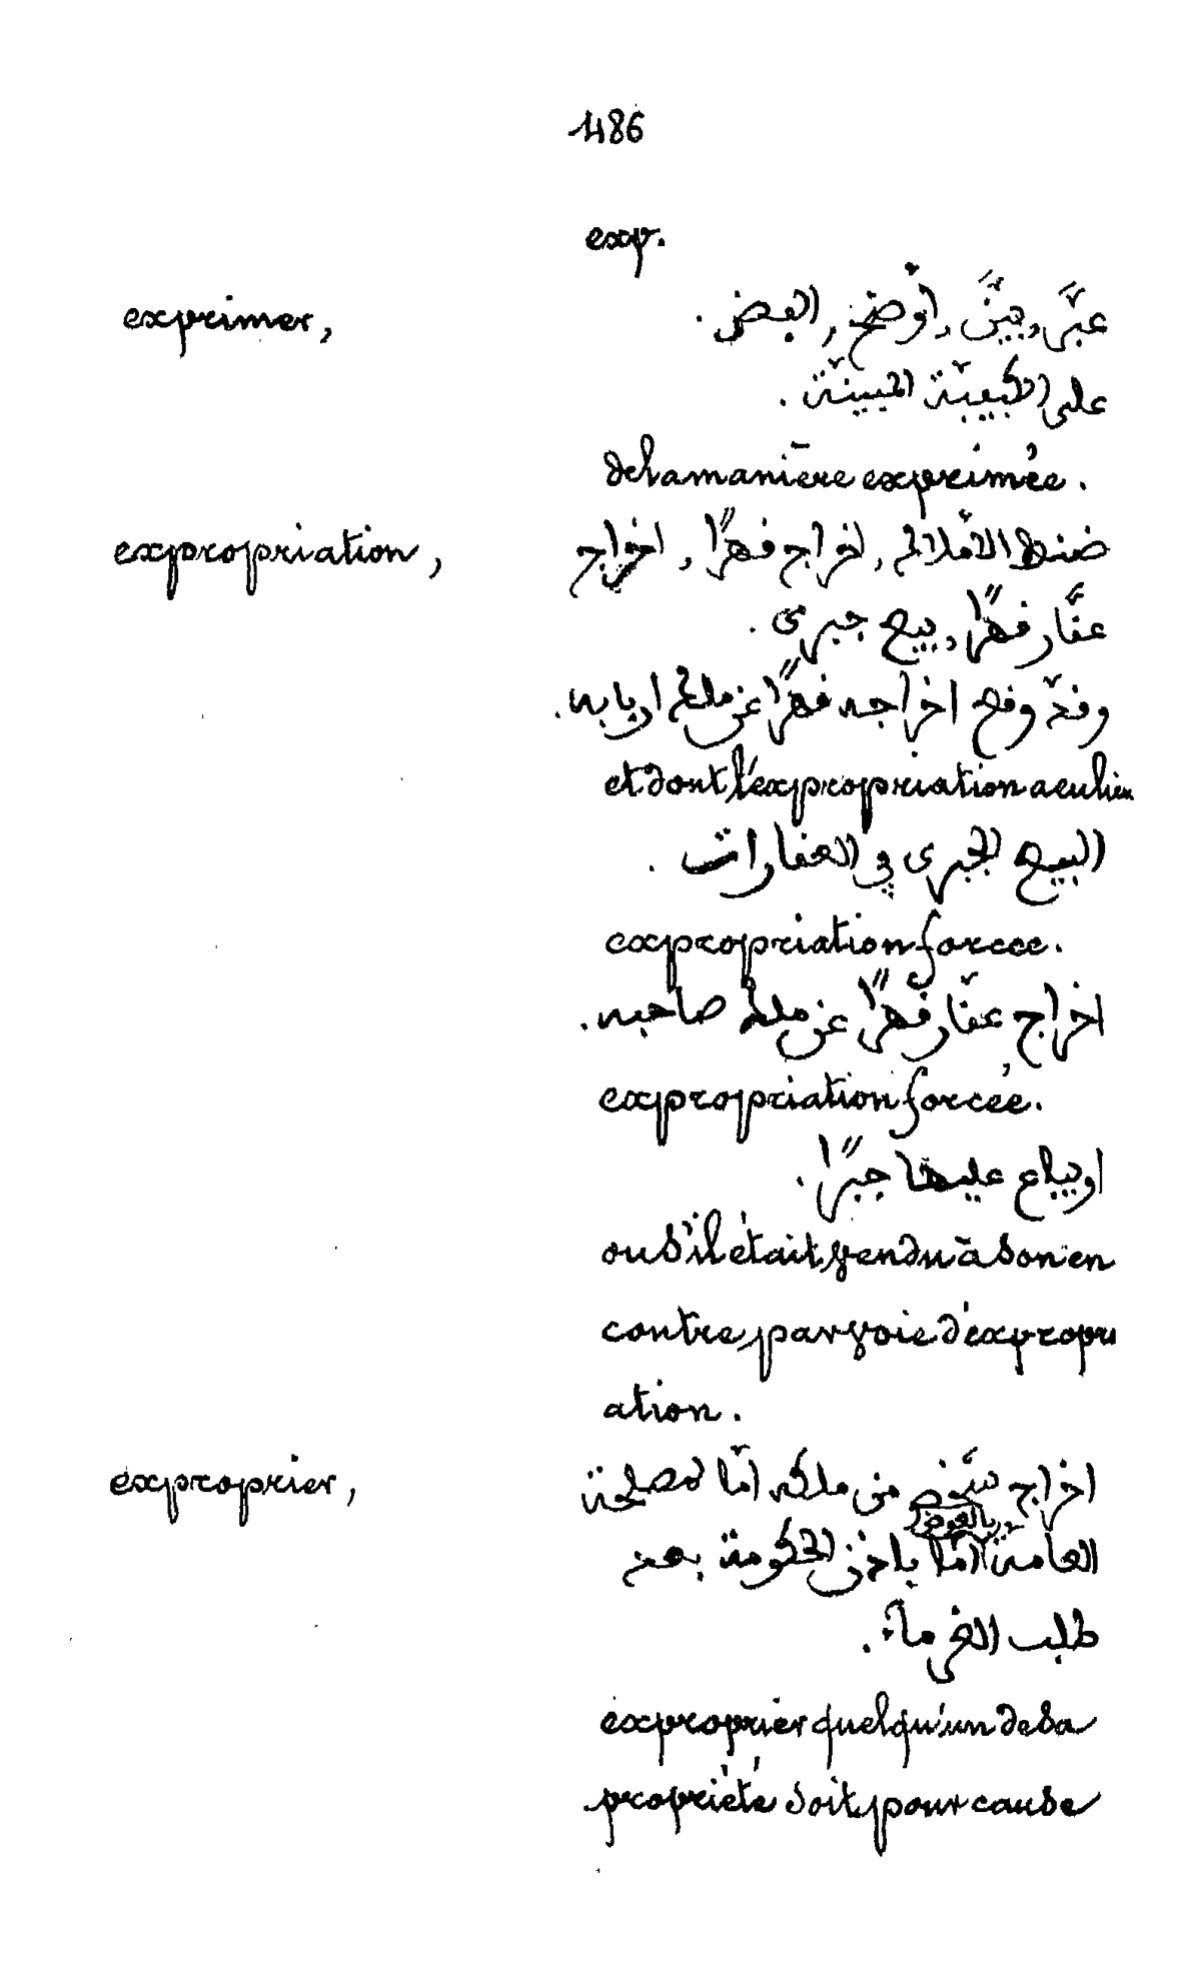 486
exp.
exprimer, عبّر, بيّن, اوضح, .
على الكيفيّة المبيّنة .
de la manière exprimée.
expropriation, ضبط الاملاك, اخراج قهرًا, اخراج
عقّار قهرًا, بيع جبرى .
وقد وقع اخراجه قهرًا عن ملك اربابه.
et dont l'expropriation a eu lieu
البيع الجبرى فى العقارات .
expropriation forcée.
اخراج عقّار قهرًا عن ملك صاحبه.
expropriation forcée.
او يباع عليها جبرًا.
ou s'il était vendu à son en
contre par voie d'expropri
ation.
exproprier, اخراج شخص من ملكه امّا لمصلحة
العامة بالعوض امّا باذن الحكومة بعد
طلب الغرماء.
exproprier quelqu'un de sa
propriété soit pour cause